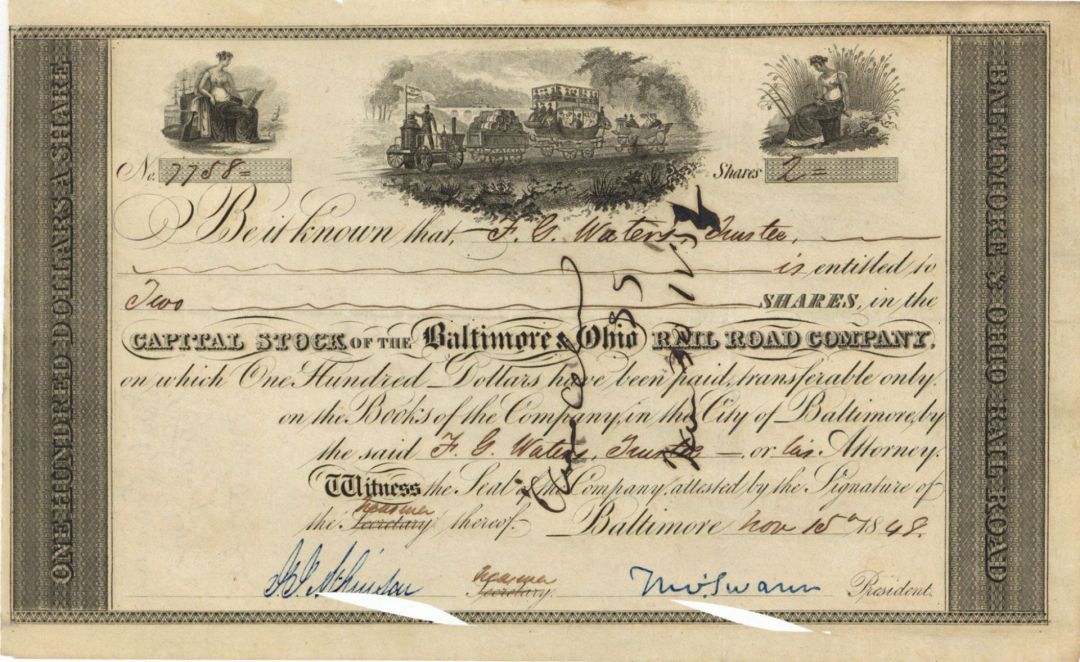 ONE HUNDRED DOLLARS A SHARE
BALTIMORE & OHIO RAIL ROAD
No. 7758=
Shares 2=
Be it known that, F. G. Waters, Trustee,
is entitled to
Two SHARES, in the
CAPITAL STOCK OF THE Baltimore & Ohio RAIL ROAD COMPANY,
on which One Hundred Dollars have been paid, transferable only
on the Books of the Company, in the City of Baltimore, by
the said F. G. Waters, Trustee, or his Attorney.
Witness the Seal of the Company, attested by the Signature of
Treasurer
the Secretary thereof. Baltimore Nov 15th 1848.
Treasurer
Secretary.
Tho. Swann President.
Cancelled